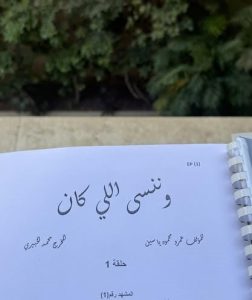 EP (1)
وننسى اللي كان
المؤلف عمرو محمود ياسين
المخرج محمد الخبيري
حلقة 1
المشهد رقم(1)